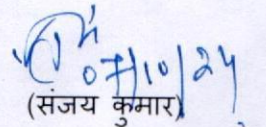 07/10/24
(संजय कुमार)